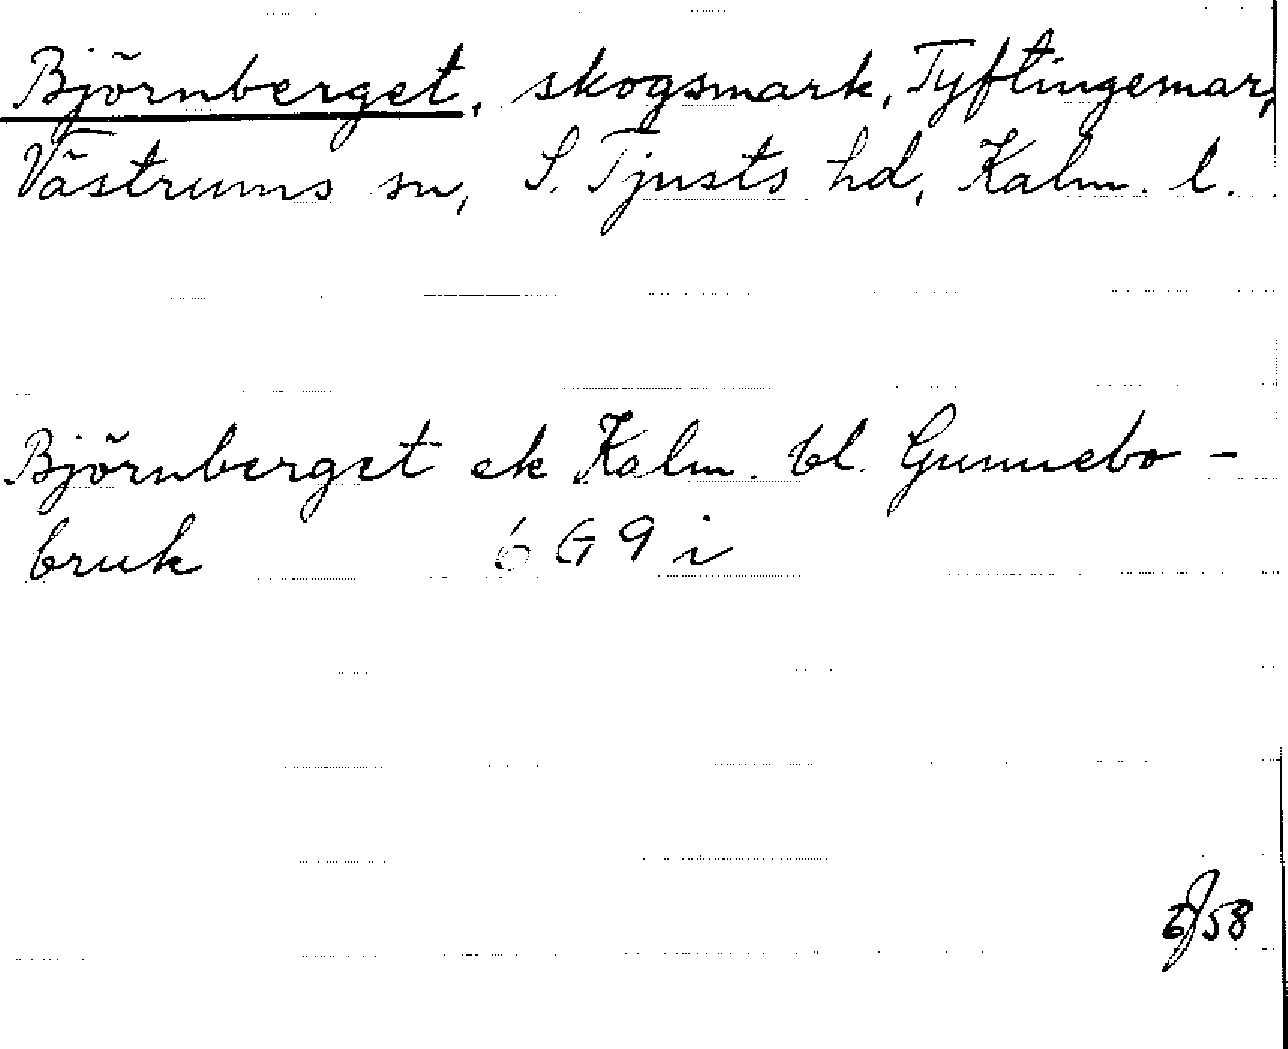 Björnberget, skogsmark, Tyftingemar,
Västrums sn, S. Tjusts hd, Kalm. l.
Björnberget ek Kalm. bl. Gunnebo-
bruk 6 G 9 i
58